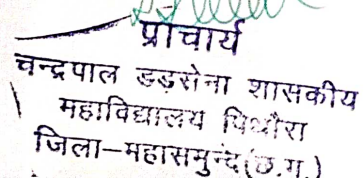 प्राचार्य
चन्द्रपाल डड़सेना शासकीय
महाविद्यालय पिथौरा
जिला–महासमुन्द (छ.ग.)